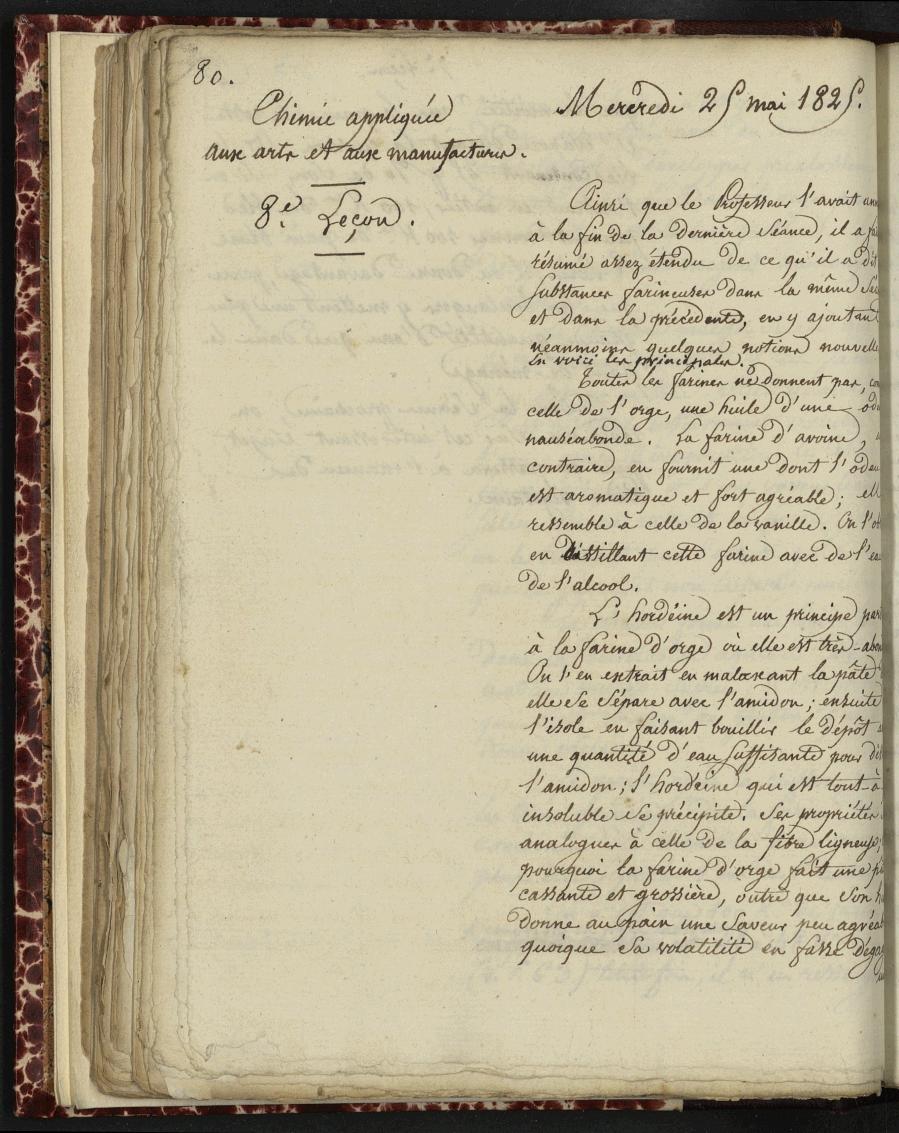 80.
Chimie appliquée
aux arts et aux manufactures.
8.e Leçon.
Mercredi 25 mai 1825.
Ainsi que le Professeur l'avait
à la fin de la dernière séance, il a
résumé assez étendu de ce qu'il a dit
substances farineuses dans la même
et dans la précédente, en y ajoutant
néanmoins quelques notions nouvelle
En voici les principales.
Toutes les farines ne donnent pas,
celle de l'orge, une huile d'une
nauséabonde. La farine d'avoine,
contraire, en fournit une dont l'odeu
est aromatique et fort agréable; ell
ressemble à celle de la vanille. On l'
en distillant cette farine avec de l'ea
de l'alcool.
L'hordéine est un principe
à la farine d'orge où elle est très-
On l'en extrait en malaxant la pâte
elle se sépare avec l'amidon; ensuite
l'isole en faisant bouillir le dépôt
une quantité d'eau suffisante pour
l'amidon; l'hordéine qui est tout-à
insoluble se précipite. Ses propriétés
analogues à celle de la fibre ligneuse;
pourquoi la farine d'orge fait une
cassante et grossière, outre que son
donne au pain une saveur peu agréa
quoique sa volatilité en fasse déga